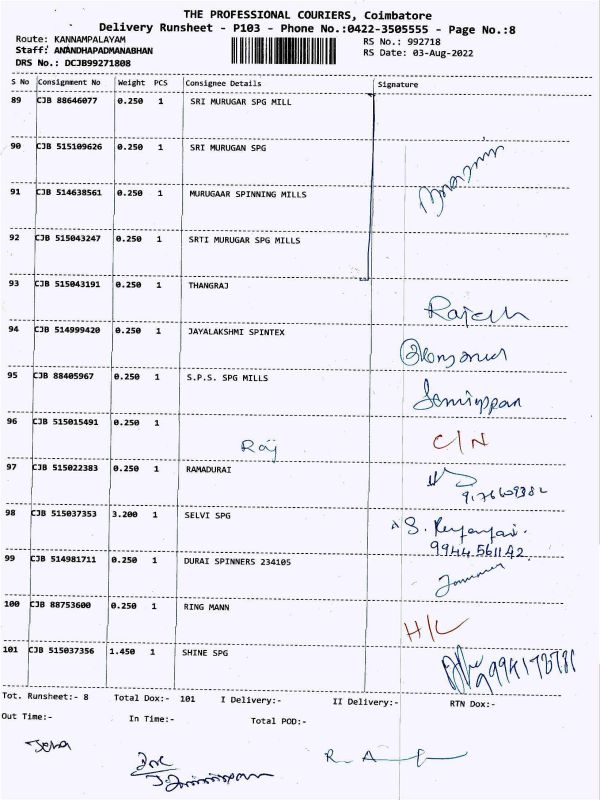 THE PROFESSIONAL COURIERS, Coimbatore
Delivery Runsheet - P103 - Phone No.:0422-3505555 - Page No.:8
Route: KANNAMPALAYAM
RS No.: 992718
Staff: ANANDHAPADMANABHAN
RS Date: 03-Aug-2022
DRS No.: DCJB99271808
S No Consignment No Weight PCS Consignee Details Signature
89 CJB 88646077 0.250 1 SRI MURUGAR SPG MILL
90 CJB 515109626 0.250 1 SRI MURUGAN SPG
91 CJB 514638561 0.250 1 MURUGAAR SPINNING MILLS
92 CJB 515043247 0.250 1 SRTI MURUGAR SPG MILLS
93 CJB 515043191 0.250 1 THANGRAJ
Rajesh
94 CJB 514999420 0.250 1 JAYALAKSHMI SPINTEX
95 CJB 88405967 0.250 1 S.P.S. SPG MILLS
96 CJB 515015491 0.250 1
Raj C/N
97 CJB 515022383 0.250 1 RAMADURAI
98 CJB 515037353 3.200 1 SELVI SPG
S.
99 CJB 514981711 0.250 1 DURAI SPINNERS 234105
100 CJB 88753600 0.250 1 RING MANN
H/L
101 CJB 515037356 1.450 1 SHINE SPG
Tot. Runsheet:- 8 Total Dox:- 101 I Delivery:- II Delivery:- RTN Dox:-
Out Time:- In Time:- Total POD:-